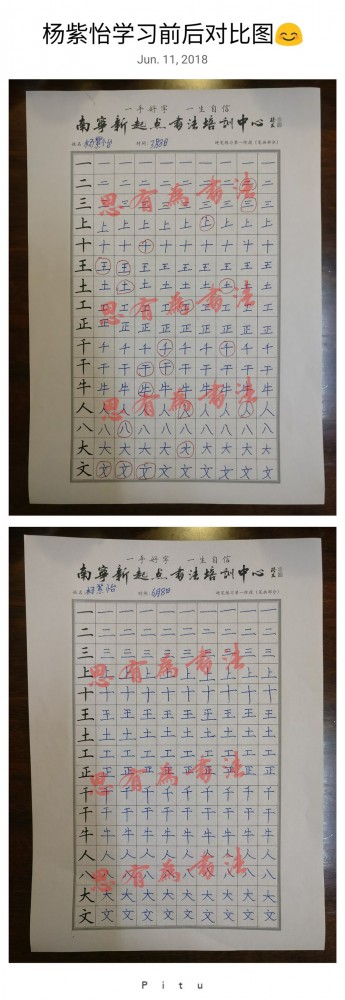 杨紫怡学习前后对比图😊
Jun. 11, 2018
一手好字 一生自信
南寧新起点书法培训中心
姓名: 杨紫怡 时间:
一 一 一 一 一 一 一 一 一 一
二 二 二 二 二 二 二 二 二 二
三 三 三 三 三 三 三 三 三 三
上 上 上 上 上 上 上 上 上 上
十 十 十 十 十 十 十 十 十 十
王 王 王 王 王 王 王 王 王 王
土 土 土 土 土 土 土 土 土 土
工 工 工 工 工 工 工 工 工 工
正 正 正 正 正 正 正 正 正 正
千 千 千 千 千 千 千 千 千 千
干 干 干 干 干 干 干 干 干 干
牛 牛 牛 牛 牛 牛 牛 牛 牛 牛
人 人 人 人 人 人 人 人 人 人
八 八 八 八 八 八 八 八 八 八
大 大 大 大 大 大 大 大 大 大
文 文 文 文 文 文 文 文 文 文
思有為書法
思有為書法
思有為書法
一手好字 一生自信
南寧新起点书法培训中心
姓名: 杨紫怡 时间: 6月8日
一 一 一 一 一 一 一 一 一 一
二 二 二 二 二 二 二 二 二 二
三 三 三 三 三 三 三 三 三 三
上 上 上 上 上 上 上 上 上 上
十 十 十 十 十 十 十 十 十 十
王 王 王 王 王 王 王 王 王 王
土 土 土 土 土 土 土 土 土 土
工 工 工 工 工 工 工 工 工 工
正 正 正 正 正 正 正 正 正 正
千 千 千 千 千 千 千 千 千 千
干 干 干 干 干 干 干 干 干 干
牛 牛 牛 牛 牛 牛 牛 牛 牛 牛
人 人 人 人 人 人 人 人 人 人
八 八 八 八 八 八 八 八 八 八
大 大 大 大 大 大 大 大 大 大
文 文 文 文 文 文 文 文 文 文
思有為書法
思有為書法
思有為書法
Pitu